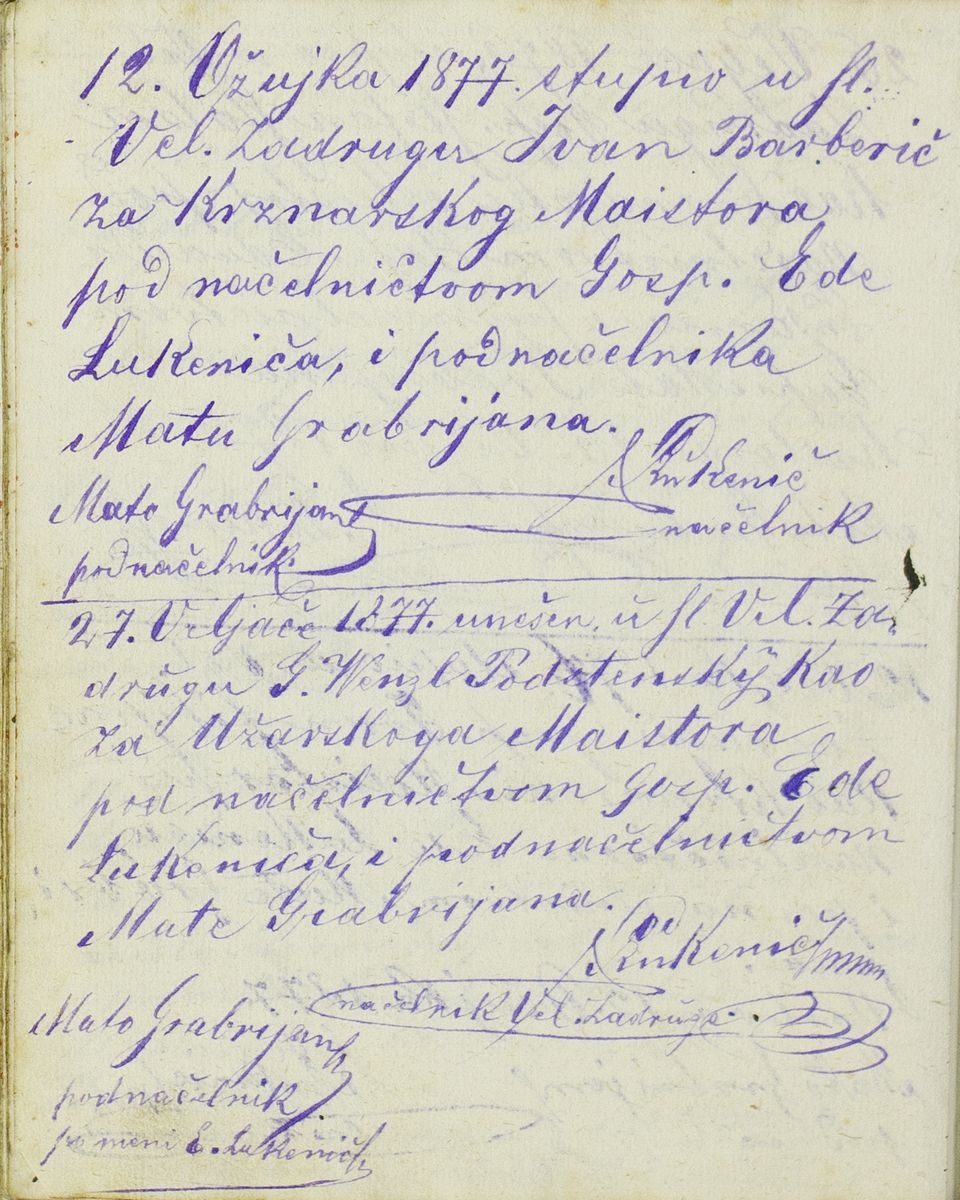 12. Ožujka 1877. stupio u hl.
Vel. Zadrugu Ivan Barberič
za Krznarskog Maistora
pod načelničtvom Gosp. Ede
Lukeniča, i podnačelnika
Matu Grabrijana.
Lukenič
načelnik
Mato Grabrijan
podnačelnik.
27. Veljače 1877. unešen, u hl. Vel. Za„
drugu G. Wenzl Podstenskÿ kao
za Užarskoga Maistora
pod načelnictvom Gosp. Ede
Lukeniča, i podnačelnictvom
Mate Grabrijana.
Lukenič
načelnik Vel. Zadruge.
Mato Grabrijan
podnačelnik
po meni E. Lukenič